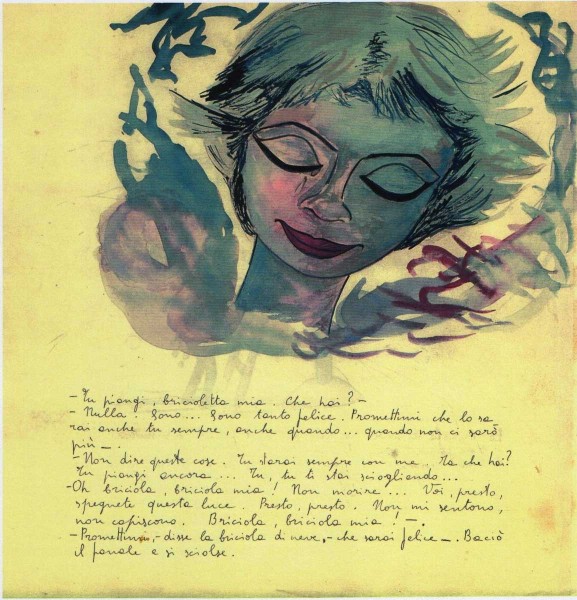 - Tu piangi, bricioletta mia. Che hai? -
- Nulla. Sono... Sono tanto felice. Promettimi che lo sa
rai anche tu sempre, anche quando... quando non ci sarò
più -.
- Non dire queste cose. Tu starai sempre con me. Ma che hai?
Tu piangi ancora... Tu, tu ti stai sciogliendo...
- Oh briciola, briciola mia! Non morire... Voi, presto,
spegnete questa luce. Presto, presto. Non mi sentono,
non capiscono. Briciola, briciola mia! -.
- Promettimi, - disse la briciola di neve, - che sarai felice -. Baciò
il fanale e si sciolse.